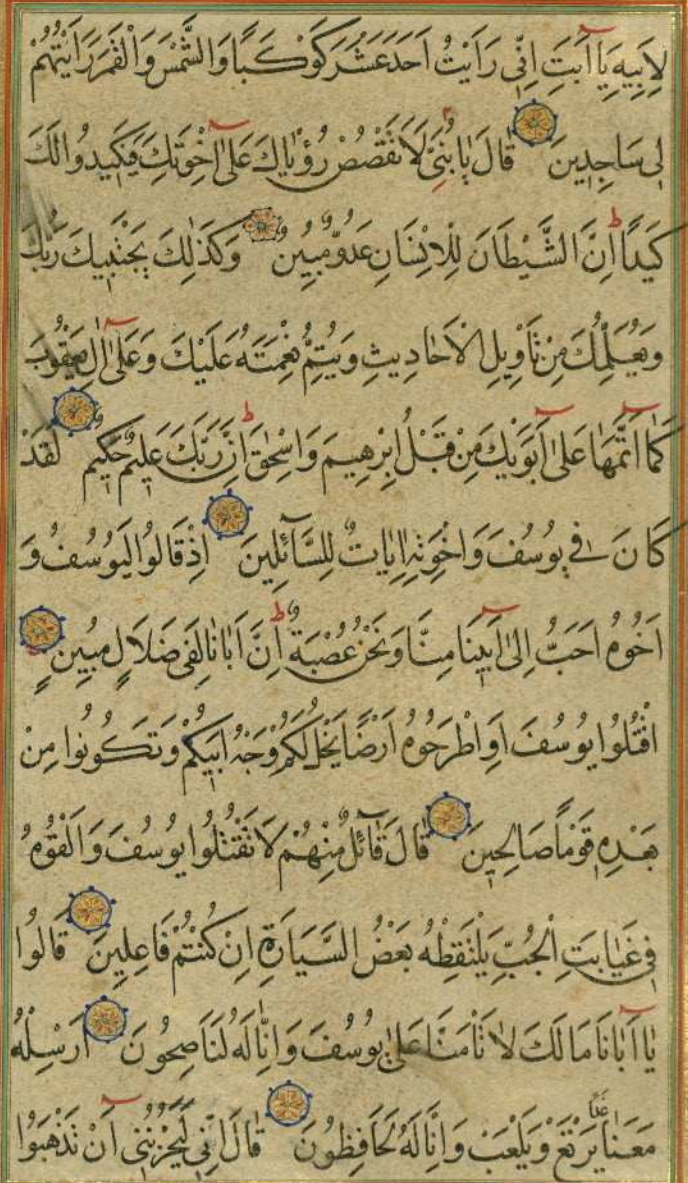 لِاَبِيهِ يَا اَبَتِ اِنِّى رَاَيْتُ اَحَدَ عَشَرَ كَوْكَبًا وَالشَّمْسَ وَالْقَمَرَ رَاَيْتُهُمْ
لِى سَاجِدِينَ قَالَ يَا بُنَىَّ لَا تَقْصُصْ رُؤْيَاكَ عَلٰى اِخْوَتِكَ فَيَكِيدُوا لَكَ
كَيْدًا اِنَّ الشَّيْطَانَ لِلْاِنْسَانِ عَدُوٌّ مُبِينٌ وَكَذٰلِكَ يَجْتَبِيكَ رَبُّكَ
وَيُعَلِّمُكَ مِنْ تَاْوِيلِ الْاَحَادِيثِ وَيُتِمُّ نِعْمَتَهُ عَلَيْكَ وَعَلٰى اٰلِ يَعْقُوبَ
كَمَا اَتَمَّهَا عَلٰى اَبَوَيْكَ مِنْ قَبْلُ اِبْرٰهِيمَ وَاِسْحٰقَ اِنَّ رَبَّكَ عَلِيمٌ حَكِيمٌ لَقَدْ
كَانَ فِى يُوسُفَ وَاِخْوَتِهِ اٰيَاتٌ لِلسَّآئِلِينَ اِذْ قَالُوا لَيُوسُفُ وَ
اَخُوهُ اَحَبُّ اِلٰى اَبِينَا مِنَّا وَنَحْنُ عُصْبَةٌ اِنَّ اَبَانَا لَفِى ضَلَالٍ مُبِينٍ
اقْتُلُوا يُوسُفَ اَوِ اطْرَحُوهُ اَرْضًا يَخْلُ لَكُمْ وَجْهُ اَبِيكُمْ وَتَكُونُوا مِنْ
بَعْدِهِ قَوْمًا صَالِحِينَ قَالَ قَآئِلٌ مِنْهُمْ لَا تَقْتُلُوا يُوسُفَ وَاَلْقُوهُ
فِى غَيَابَتِ الْجُبِّ يَلْتَقِطْهُ بَعْضُ السَّيَّارَةِ اِنْ كُنْتُمْ فَاعِلِينَ قَالُوا
يَا اَبَانَا مَا لَكَ لَا تَاْمَنَّا عَلٰى يُوسُفَ وَاِنَّا لَهُ لَنَاصِحُونَ اَرْسِلْهُ
مَعَنَا غَدًا يَرْتَعْ وَيَلْعَبْ وَاِنَّا لَهُ لَحَافِظُونَ قَالَ اِنِّى لَيَحْزُنُنِى اَنْ تَذْهَبُوا